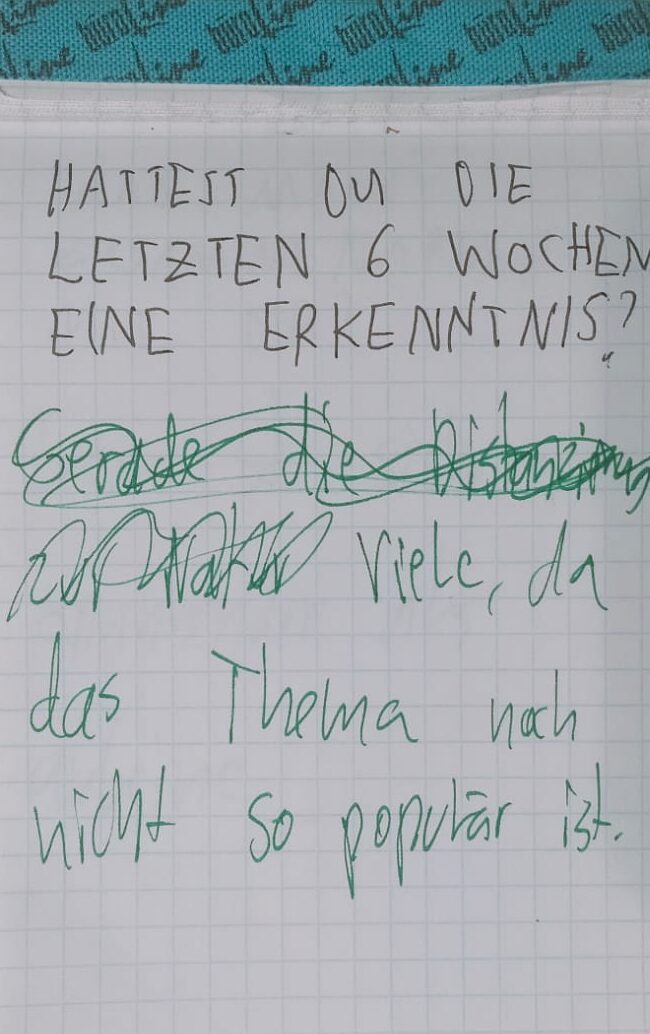 büroline büroline büroline
HATTEST DU DIE
LETZTEN 6 WOCHEN
EINE ERKENNTNIS?
Gerade die
Viele, da
das Thema noch
nicht so populär ist.